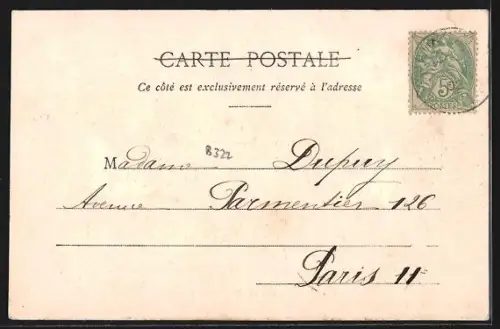 CARTE POSTALE
Ce côté est exclusivement réservé à l'adresse
B322
Madame Dupuy
Avenue Parmentier 126
Paris 11e
5